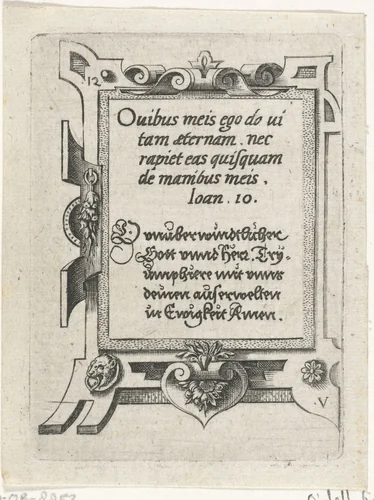 12
Ouibus meis ego do ui
tam æternam. nec
rapiet eas quisquam
de manibus meis.
Ioan. 10.
O unüberwindtlicher
Gott vnnd Herr. Try-
umphiere mit vnns
deinen auserwelten
in Ewigkeit Amen.
V